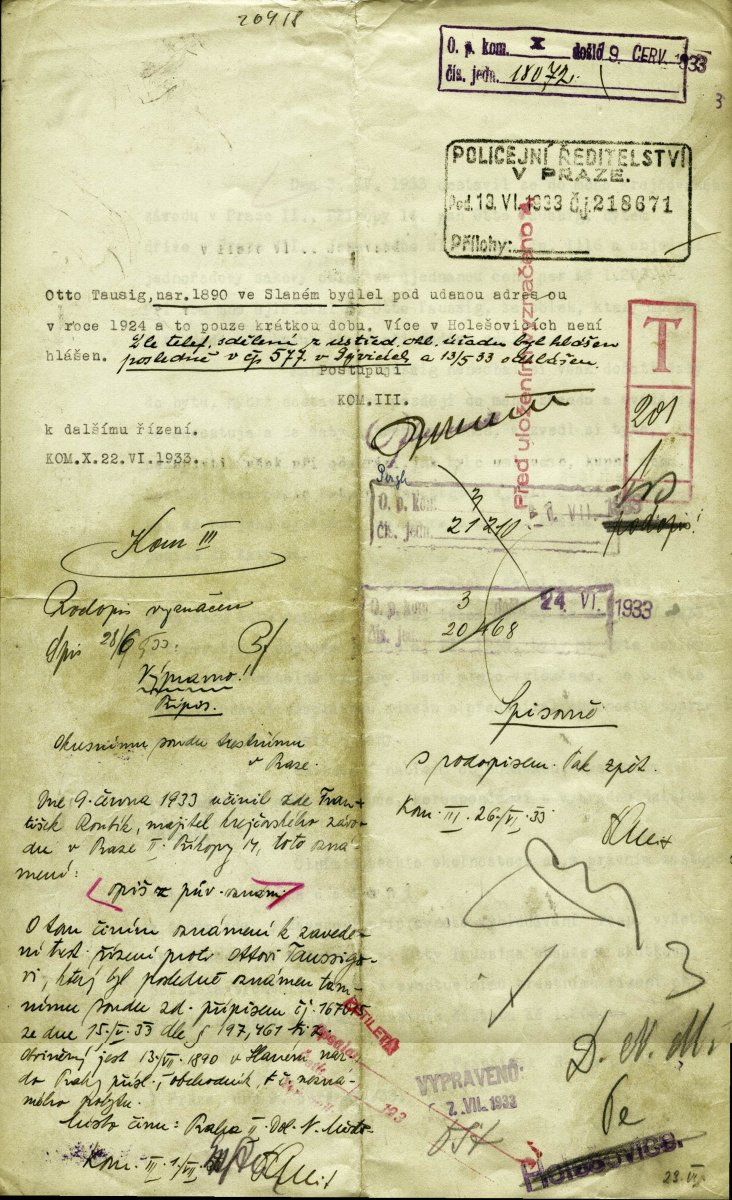 20918
O. p. kom. X došlo 9. ČERV. 1933
čís. jedn. 18072.
3
POLICEJNÍ ŘEDITELSTVÍ
V PRAZE.
Pod. 13. VI. 1933 Č.j. 218671
Přílohy:
Otto Tausig, nar. 1890 ve Slaném bydlel pod udanou adresou
v roce 1924 a to pouze krátkou dobu. Více v Holešovicích není
hlášen. Dle telef. sdělení z ústřed. ohl. úřadu byl hlášen
posledně v čp 577. v a 13/5 33 odhlášen.
Postupuji
KOM.III.
k dalšímu řízení.
KOM.X.22.VI.1933.
Před uložením vyznačeno
T
201
O. p. kom. 3 VII. 1933
čís. jedn. 21210
Kom III
O. p. kom. 3 24. VI. 1933
čís. jedn. 20468
Rodopis vyznačen
Spis 28/6 33.
Výpravno!
Připos.
Okresnímu soudu trestnímu
v Praze.
Spisovně
s rodopisem pak zpět.
Kom. III. 26./VI. 33
Dne 9. června 1933 učinil zde Fran-
tišek Rontík, majitel krejčovského závo-
du v Praze II. Příkopy 14, toto ozná-
mení:
opiš z pův. oznám.
O tom činím oznámení k zavede-
ní trest. řízení proti Ottovi Taussigo-
vi, který byl posledně oznámen tam-
nímu soudu zd. přípisem čj.
ze dne 15./V. 33 dle § 197, 461 tr. z.
Obviněný jest 13./VII. 1890 v Slaném nar.
do Prahy přísl., obchodník, t. č. nezná-
mého pobytu.
Místo činu: Praha II. Dol. N. Město
Kom. III. 1/VII.
3
VYPRAVENO:
7. VII. 1933
193
D. N. M.
Holešovice.
23. VI.